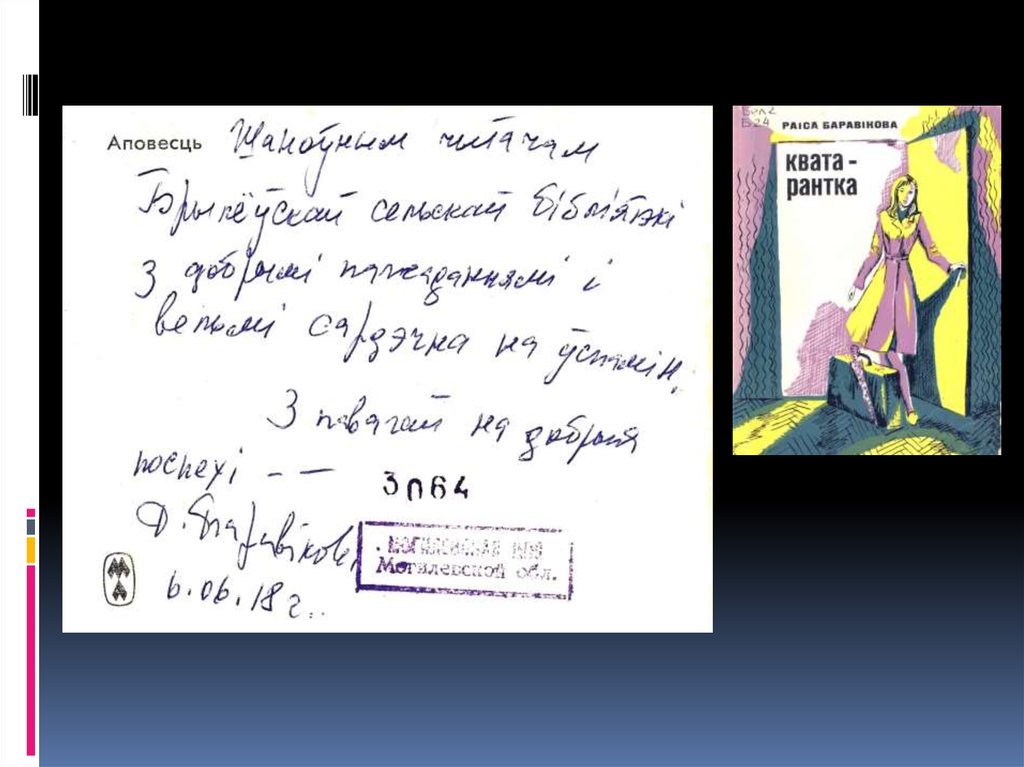 Аповесць Шаноўным чытачам
Брылёўскай сельскай бібліятэкі
З добрымі пажаданнямі і
вельмі сардэчна на ўспамін.
З павагай на добрыя
поспехі - —
Р. Баравікова,
6.06.18 г..
3064
Могилевской обл.
РАІСА БАРАВІКОВА
КВАТА -
РАНТКА
Б24